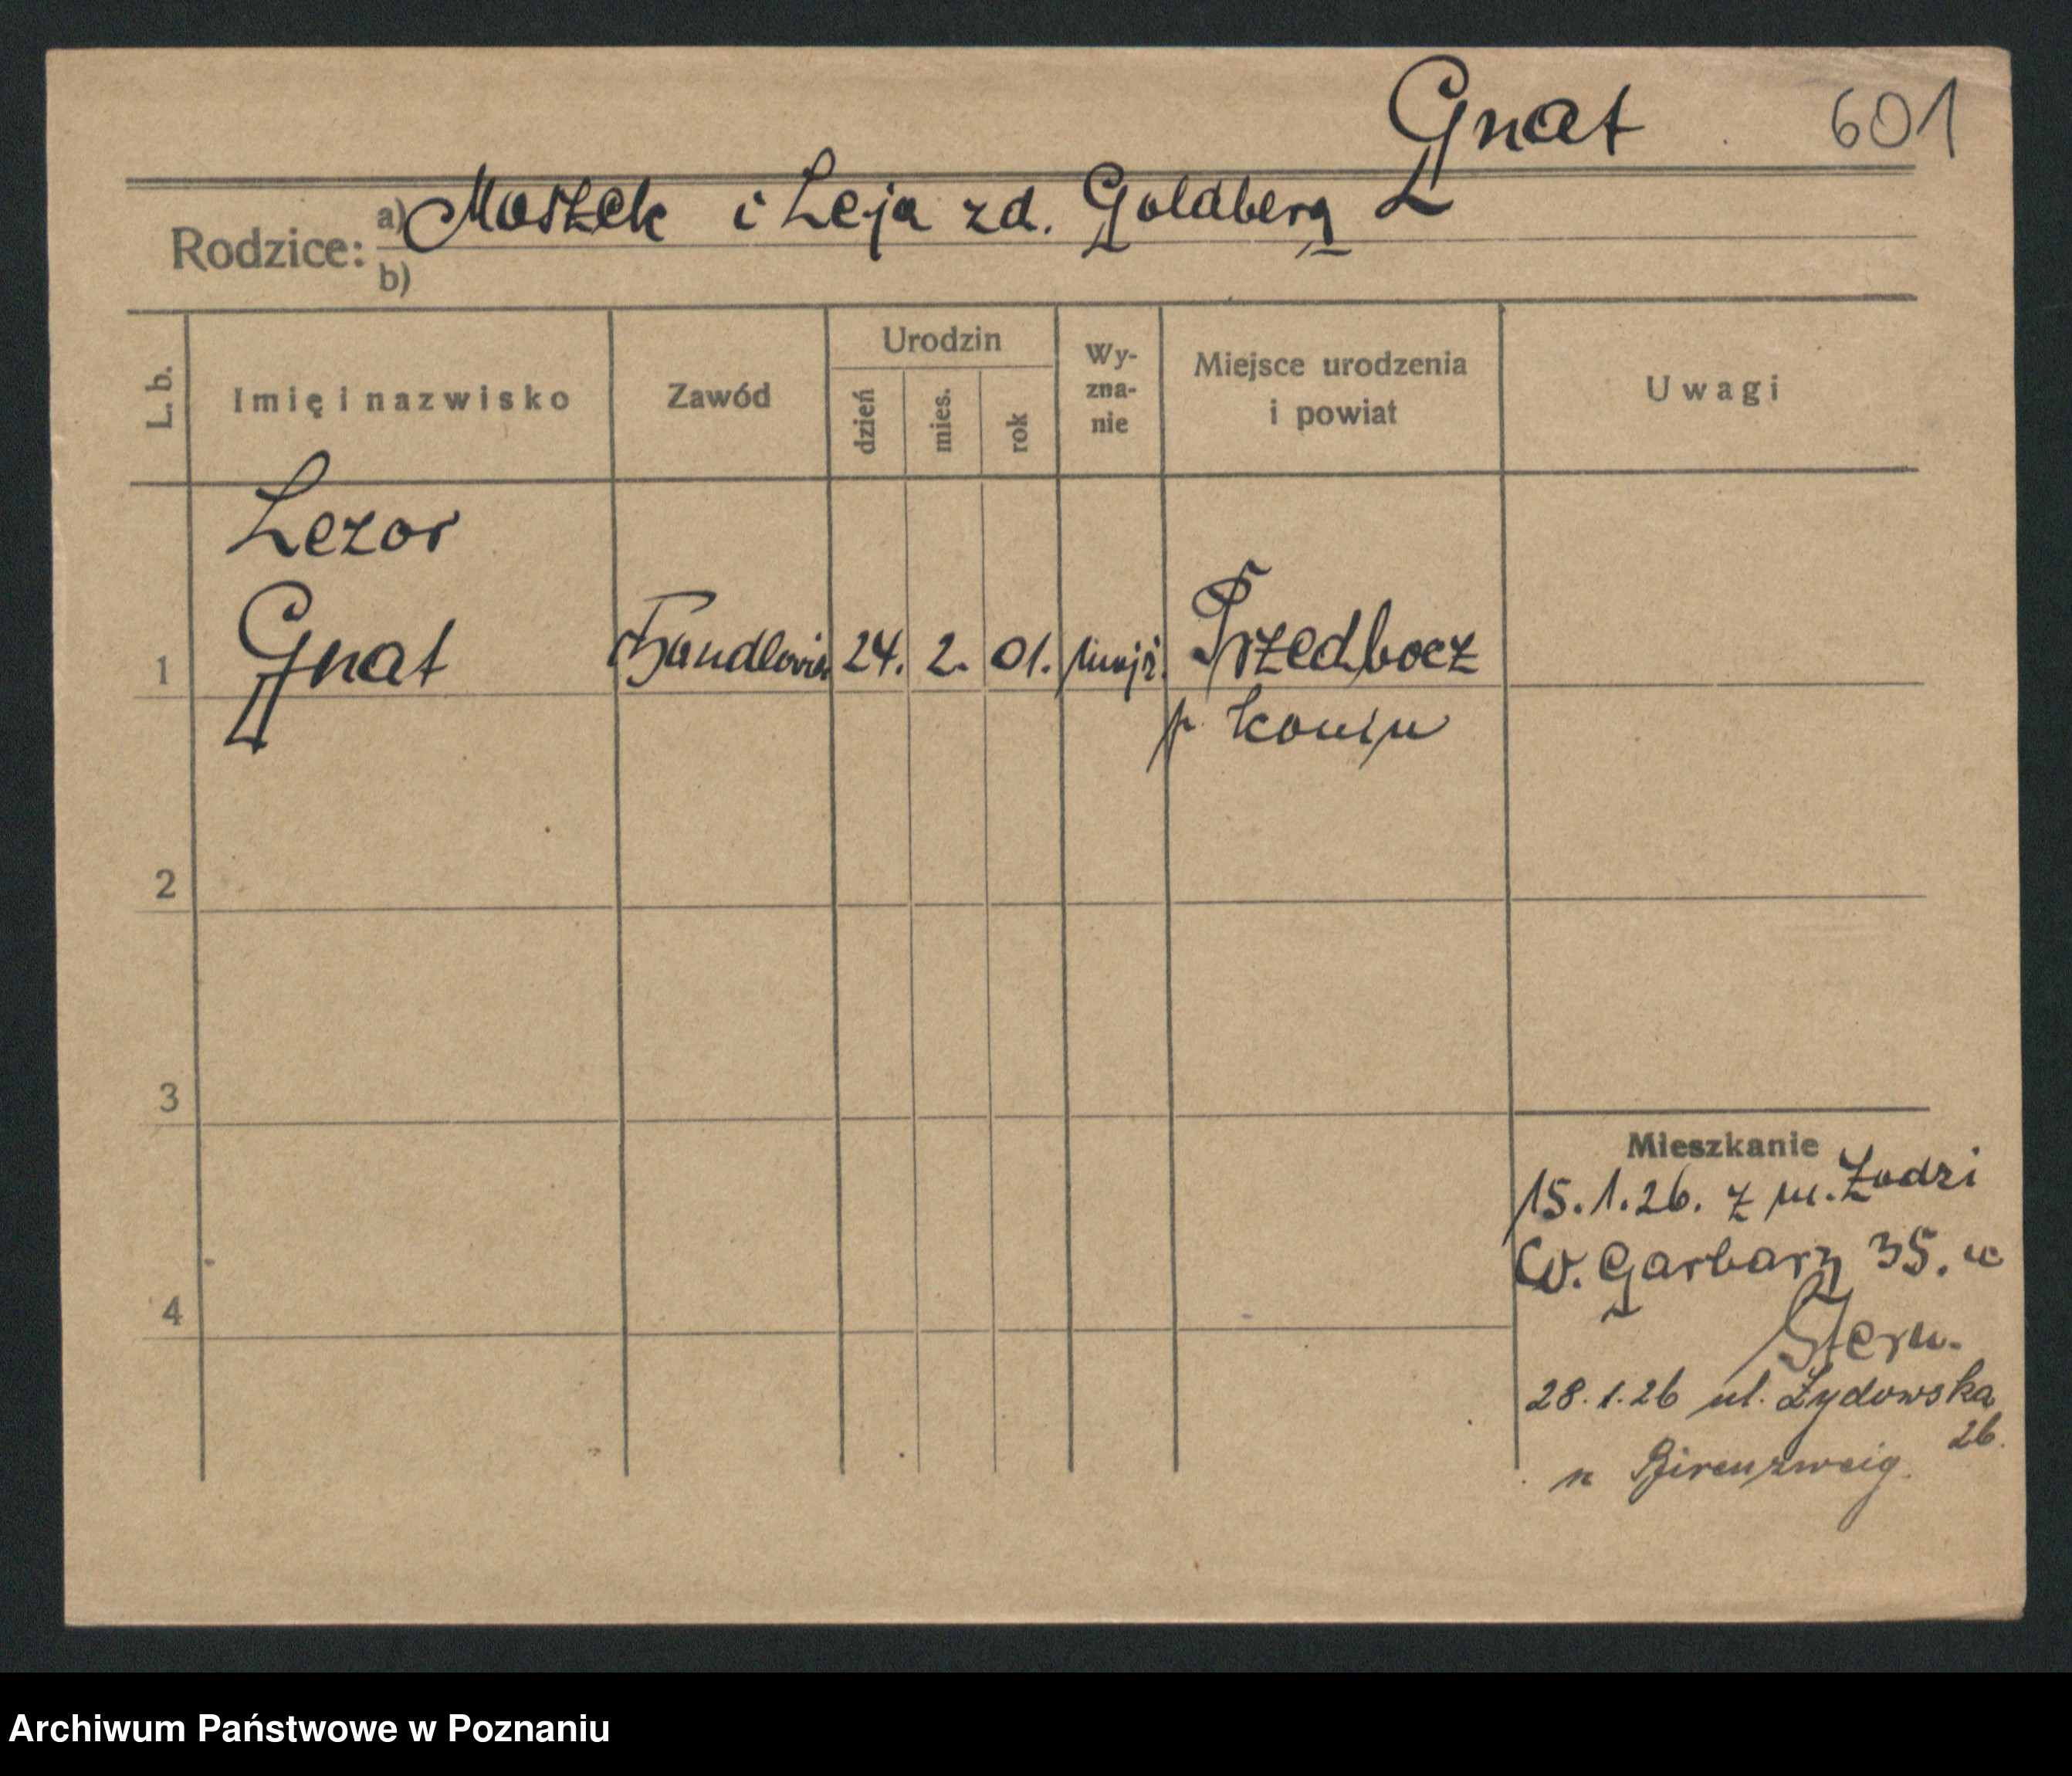 Gnat 601
Rodzice: a) Moszek i Leja zd. Goldberg
b)
L. b. Imię i nazwisko Zawód Urodzin dzień mies. rok Wy-zna-nie Miejsce urodzenia i powiat Uwagi
Lezor
1 Gnat 24. 2. 01. mojż. Przedbocz
p. Konin
2
3
4
Mieszkanie
15.1.26. z m. Łodzi
W. Garbary 35. u
Stern.
28.1.26 ul. Żydowska
26.
u Birenzweig.
Archiwum Państwowe w Poznaniu